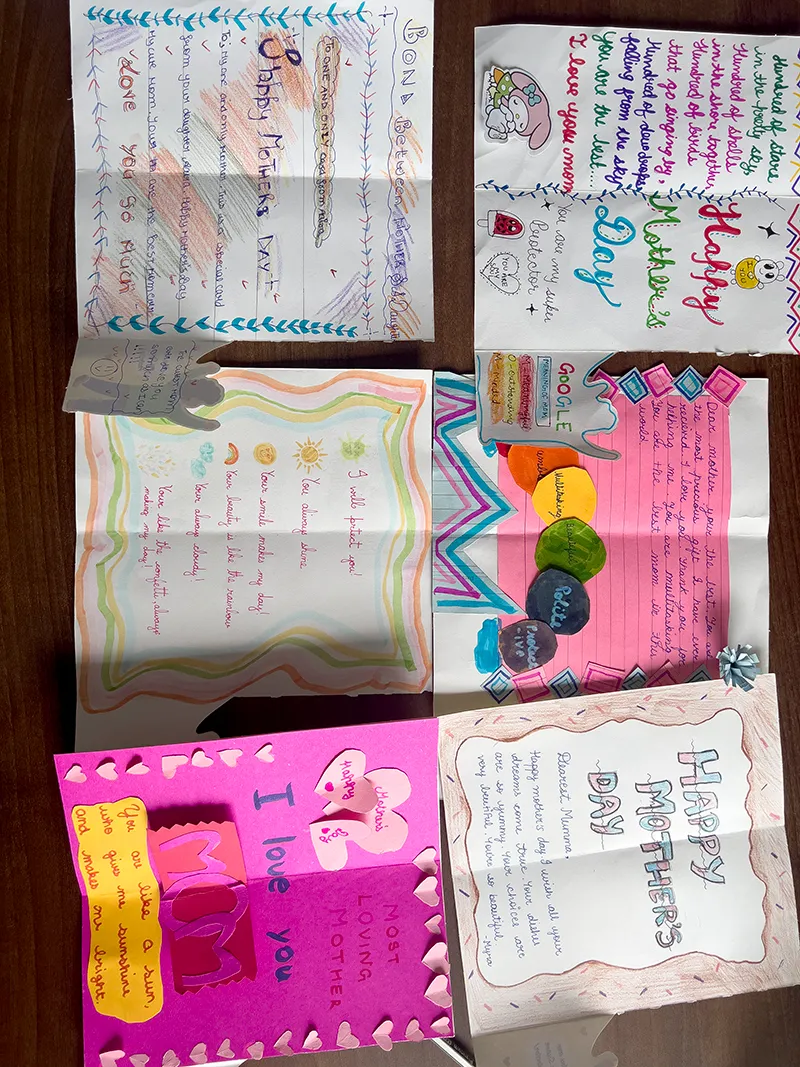 Hundred of stars
in the pretty sky
Hundred of shells
in the shore together
Hundred of birds
that go singing by,
Hundred of dew drops
falling from the sky
you are the best...
I love you mom
Happy
Mother's
Day
You are my super
Protector
YOU ARE
MY
Dear mother your the best. You are
the most precious gift I have ever
recived. I love you! Thank you for
helping me You are multitasking
You are the best mom in the
world
GOOGLE
MEANING OF MOM
M-Meaningful
O-outstanding
M-Minded
Multitasking
Beautiful
Polite
Protect
-ive
HAPPY
MOTHER'S
DAY
Dearest Mumma,
Happy mother's day I wish all your
dreams come true. Your dishes
are so yummy. Your choices are
very beutiful. You're so beautiful
-Myra
BOND Between MOTHER And Daughter
TO ONE AND ONLY
Happy MOTHERS DAY
To, my one and only Momma this is a special card
from your daughter Happy Mother's day
My cute Mom. Your the one the best Mom ever
LOVE YOU SO MUCH
I will prtect you!
You always shine
Your smile makes my day!
Your beauty is like the rainbow
Your always cloudy!
Your like the confetti, always
making my day!
Happy
Mother's
Day
MOST
LOVING
MOTHER
I love you
MOM
You are like a sun,
who gives me sunshine
and makes me bright.